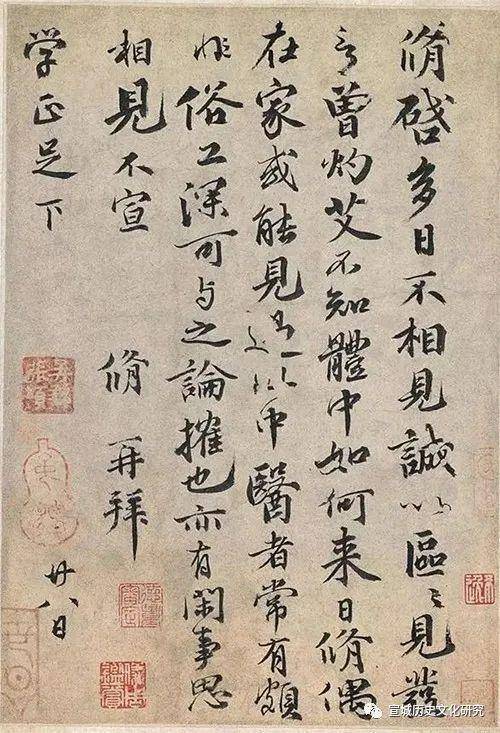 脩啓多日不相見誠以區〻見發
言曾灼艾不知體中如何来日脩偶
在家或能見過此中醫者常有頗
非俗工深可与之論搉也亦有閑事思
相見不宣 脩再拜
学正足下 廿八日
宣城历史文化研究